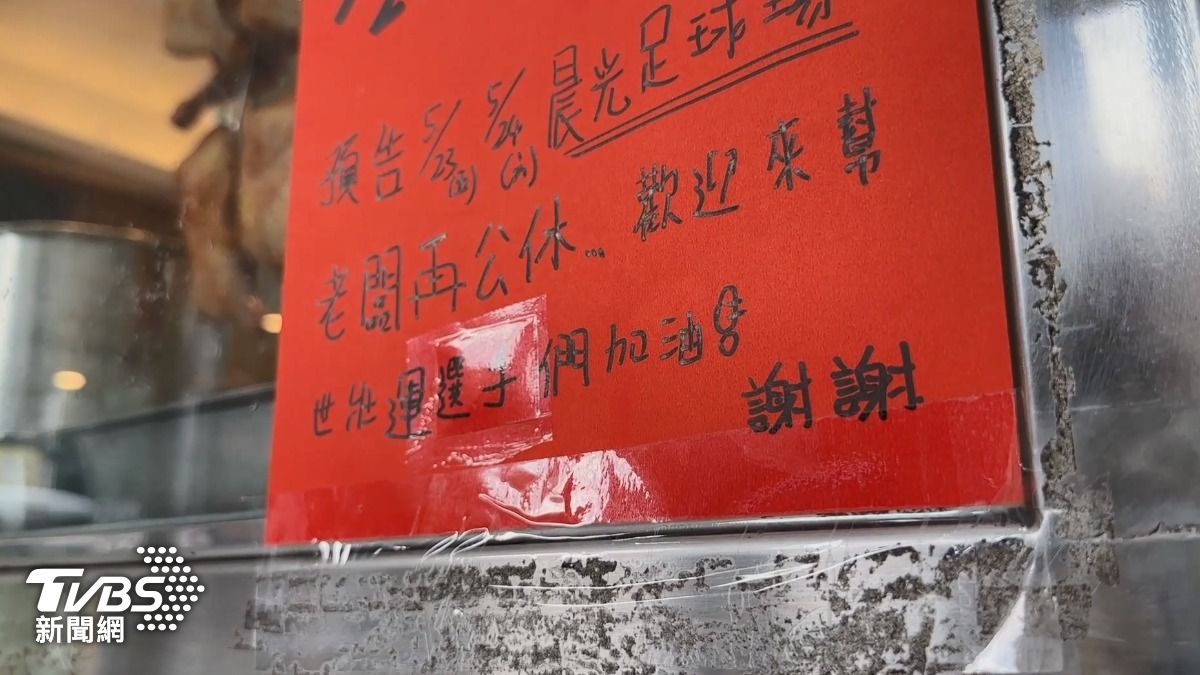 預告 5/23(五) 5/24(六) 晨光足球場
老闆再公休... 歡迎來幫
世壯運選手們加油!
謝謝
TVBS
新聞網